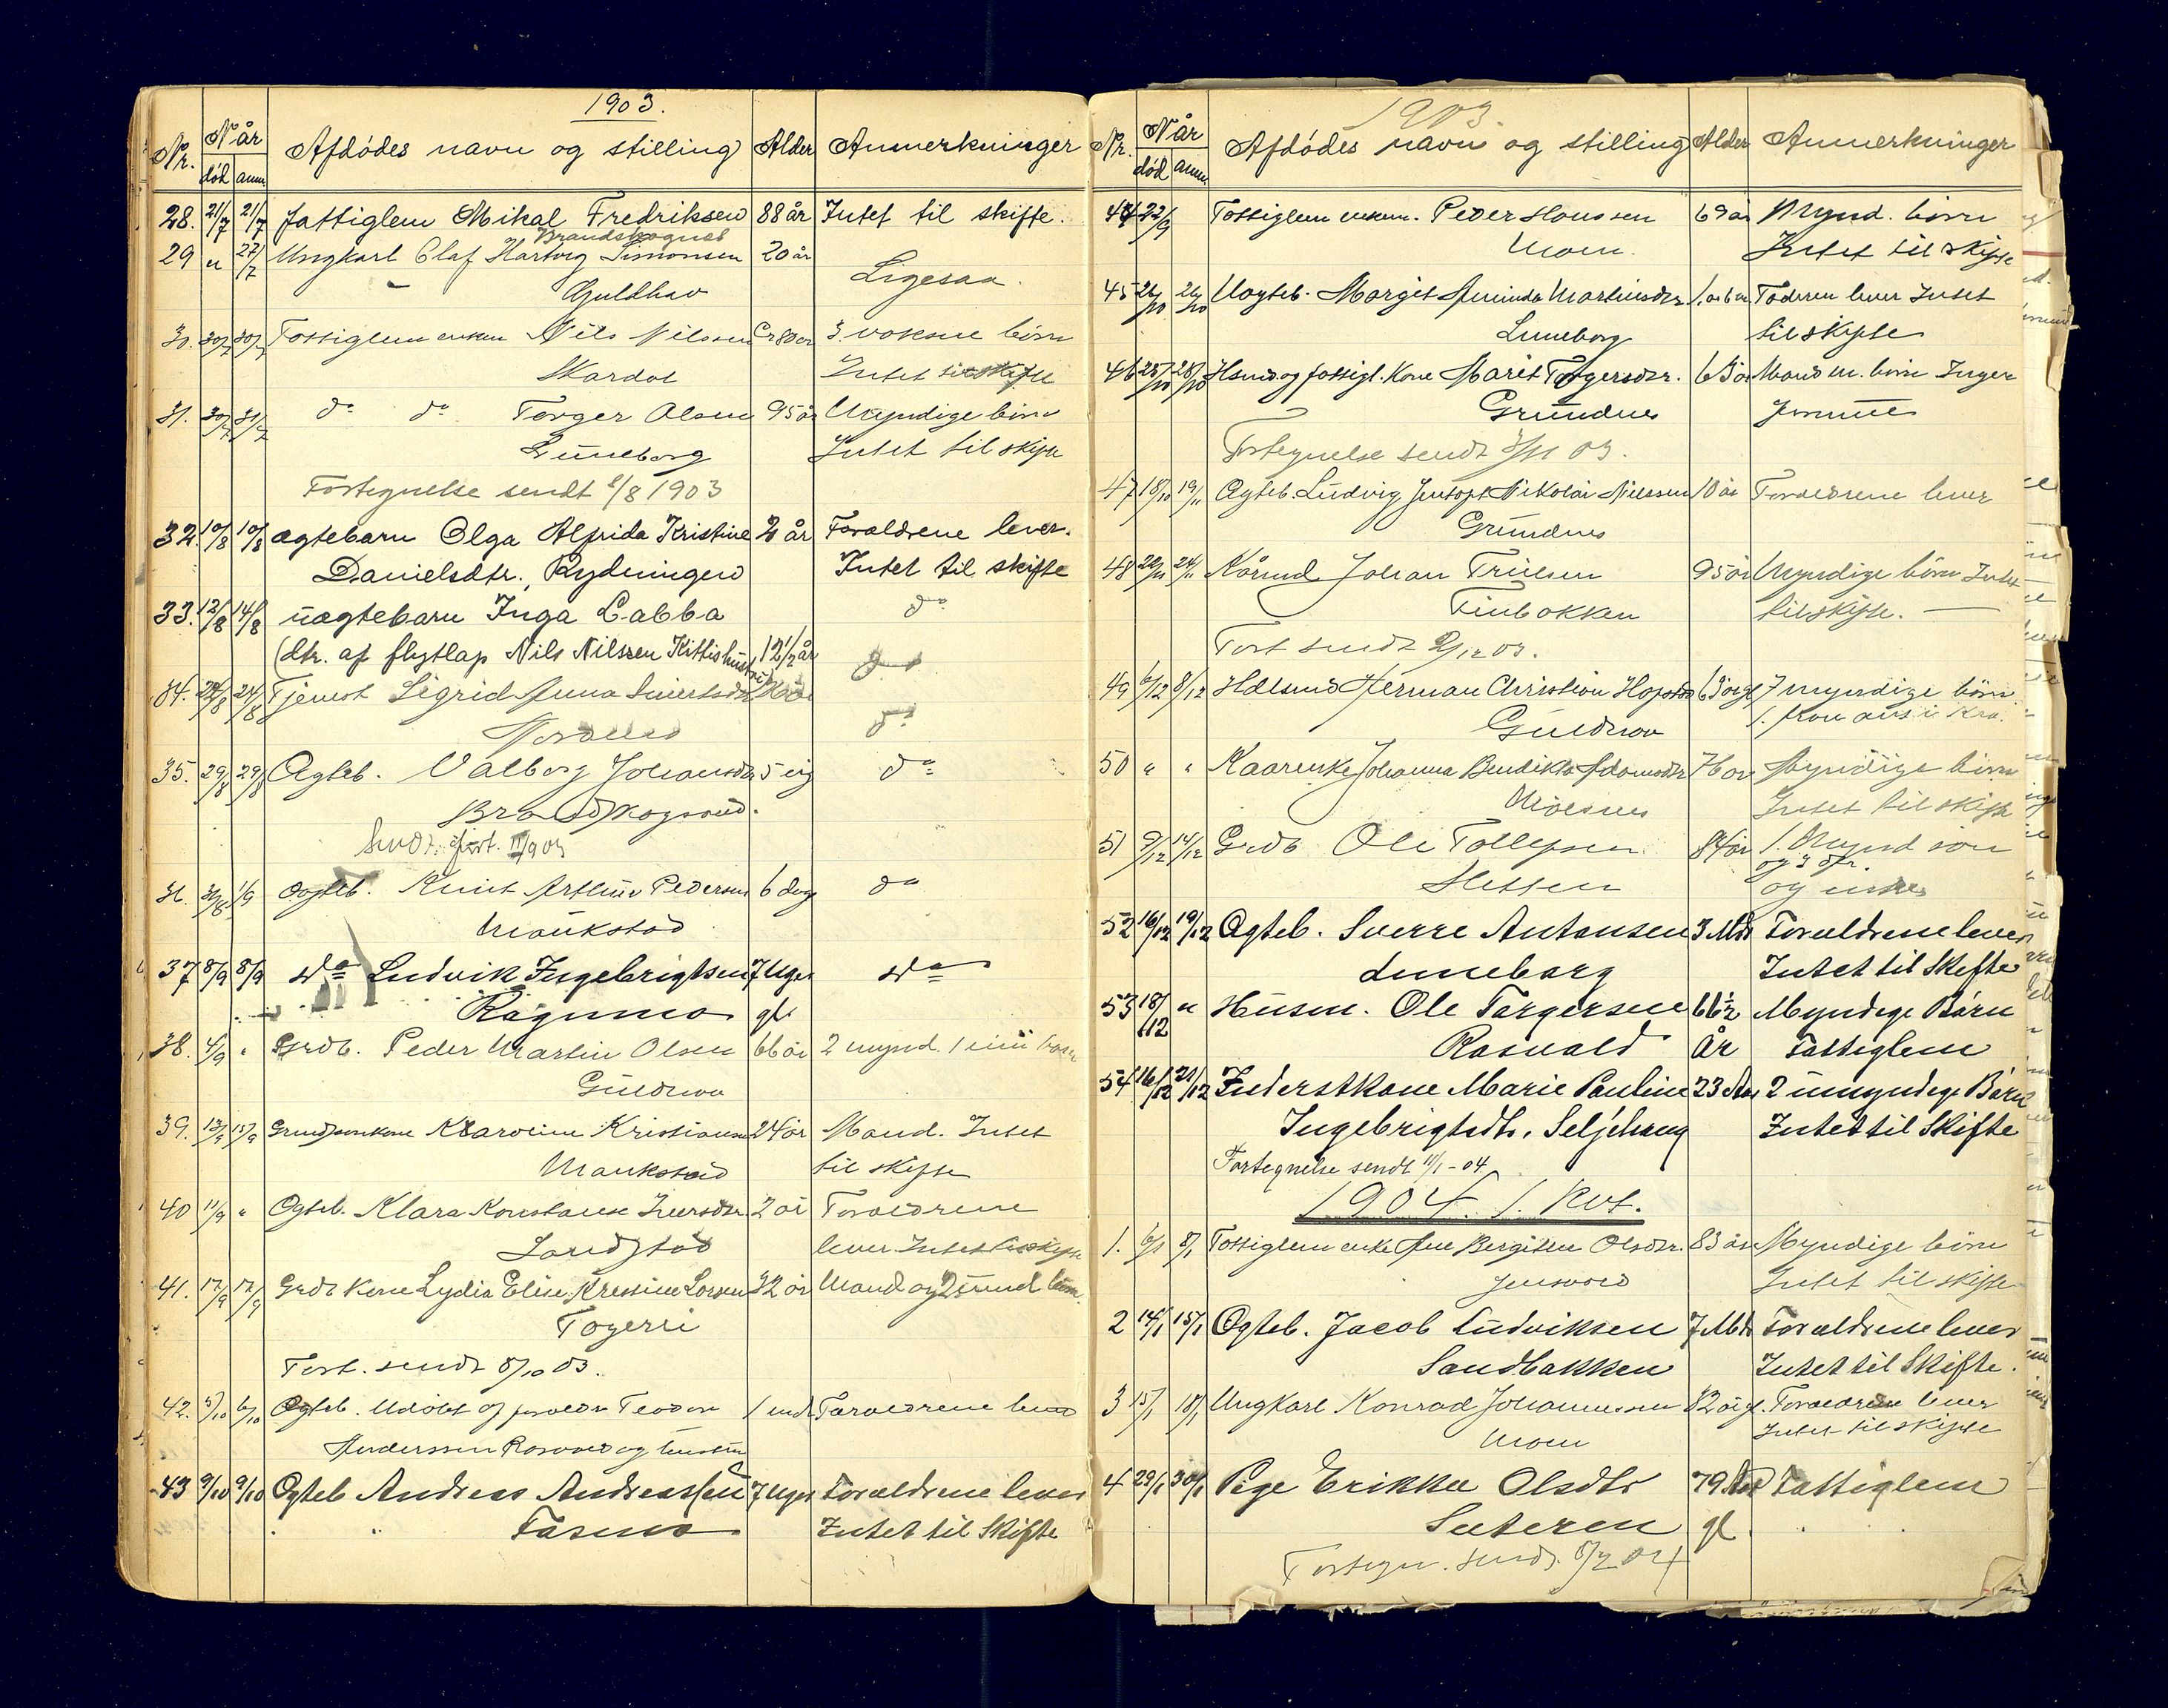 1903.
Nr. Når Afdödes navn og stilling Alder Anmerkninger
död anm.
28. 21/7 21/7 fattiglem Mikal Fredriksen 88 år Intet til skifte.
Brandskognes
29 " 22/7 Ungkarl Olaf Hartvig Simonsen 20 år
Guldhav Ligesaa.
30. 30/7 30/7 Fattiglem enkem Nils Nilssen Ca 80 år 3 voksne börn
Skardal Intet til skifte
31. 30/7 31/7 do do Torger Olsen 95 år Myndige börn
Luneborg Intet til skifte
Fortegnelse sendt 8/8 1903
32. 10/8 10/8 ægtebarn Olga Alfrida Kristine 2 år Forældrene lever.
Danielsdtr. Rydningen Intet til skifte
33. 12/8 14/8 uægtebarn Inga Labba do
(dtr. af flytlap Nils Nilssen Kittis hustru) 12 1/2 år
34. 24/8 24/8 Tjenest Sigrid Anna Sivertsdtr
do
35. 29/8 29/8 Ægteb. Valborg Johansdtr 5 do
Brandskognes.
Sendt fort. 11/9 03
36. 30/8 1/9 Ægteb. Knut Arthur Pedersen 6 dag do
Maukstad
37 8/9 8/9 do Ludvik Ingebrigtsen 7 Uger do
Rognmo gl.
38. 4/9 " Grdb. Peder Martin Olsen 66 år 2 mynd. 1
Guldhav
39. 13/9 15/9 Karoline Kristianse 24 år Mand. Intet
Maukstad til skifte
40 11/9 " Ægteb. Klara Konstanse Iversdtr. 2 år Forældrene
Sandstad lever. Intet til skifte
41. 12/9 17/9 Grdb Kone Lydia Elise Kressine Larsen 32 år Mand og 2 börn
Togerri
Fort. sendt 8/10 03.
42. 5/10 6/10 Ægteb. Udöbt af foreldre Teodor 1 Forældrene lever
Anderssen Rosvold og hustru
43 9/10 9/10 Ægteb Andreas Andreassen 7 Uger Forældrene lever
Fosmo Intet til Skifte
1903.
Nr. Når Afdödes navn og stilling Alder Anmerkninger
död anm.
44 22/9 Fattiglem enkem. Peder Hanssen 69 år Mynd. börn
Moen. Intet til skifte
45 26/10 26/10 Uægteb. Margit Aminda Martinsdtr 1 år 6 m Faderen lever Intet
Luneborg til skifte
46 25/10 28/10 Hsmd og fattigl. Kone Marit Torgersdtr. 63 år Mand m. börn Ingen
Grundnes formue
Fortegnelse sendt 3/11 03.
47 18/10 19/11 Ægteb. Ludvig Jentoft Nikolai Nielssen 10 år Forældrene lever
Grundnes
48 22/11 24/11 Kårmd Johan Trulsen 95 år Myndige börn Intet
Finbakken til skifte.
Fort sendt 2/12 03.
49 6/12 8/12 Herman Christian 63 år gl 7 myndige börn
Guldhav
50 " " Kaarenke Johanna Bendikte Adamsdtr 76 år Myndige börn
Moesnes Intet til skifte
51 9/12 14/12 Grdb Ole Tollefsen 84 år 1 Mynd sön
og 3 dtr.
Sletten og enke
52 16/12 19/12 Ægteb. Sverre Antonsen 3 Mdr Forældrene lever
Luneborg Intet til Skifte
53 18/12 " Husm. Ole Torgersen 66 1/2 Myndige Börn
Rosvald År Fattiglem
54 16/12 21/12 Inderstkone Marie Pauline 23 Aar 2 umyndige Börn
Ingebrigtsdtr. Seljehaug Intet til Skifte
Fortegnelse sendt 11/1-04
1904. 1. Kvt.
1. 6/1 8/1 Fattiglem enke Ane Bergitte Olsdtr. 83 år Myndige börn
Jensvold Intet til skifte
2 14/1 15/1 Ægteb. Jacob Ludviksen 7 Mdr Forældrene lever
Sandbakken Intet til Skifte.
3 15/1 18/1 Ungkarl Konrad Johannessen 32 år gl. Forældrene lever
Moen Intet til skifte
4 29/1 30/1 Pige Erikka Olsdtr 79 Aar Fattiglem
Sæteren gl.
Fortegn. sendt 8/2 04